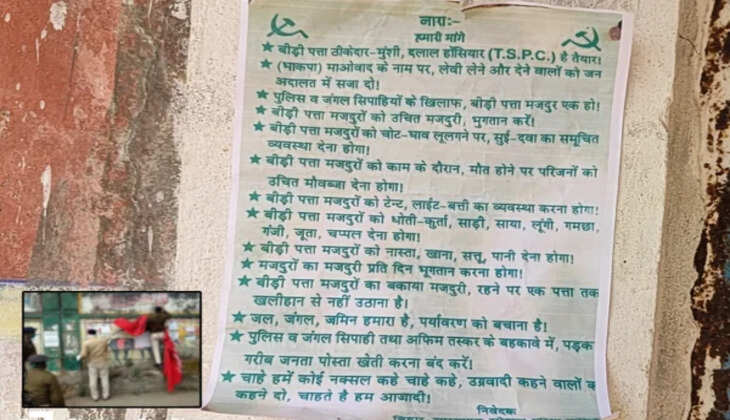 नाराः-
हमारी मांगे
★ बीड़ी पत्ता ठीकेदार-मुंशी, दलाल होंसियार (T.S.P.C.) है तैयार!
★ (भाकपा) माओवाद के नाम पर, लेवी लेने और देने वालों को जन
अदालत में सजा दो!
★ पुलिस व जंगल सिपाहियों के खिलाफ, बीड़ी पत्ता मजदुर एक हो!
★ बीड़ी पत्ता मजदुरों को उचित मजदुरी, भुगतान करें!
★ बीड़ी पत्ता मजदुरों को चोट-घाव लूलगने पर, सुई-दवा का समुचित
व्यवस्था देना होगा!
★ बीड़ी पत्ता मजदुरों को काम के दौरान, मौत होने पर परिजनों को
उचित मौवब्जा देना होगा!
★ बीड़ी पत्ता मजदुरों को टेन्ट, लाईट-बत्ती का व्यवस्था करना होगा!
★ बीड़ी पत्ता मजदुरों को धोती-कुर्ता, साड़ी, साया, लूंगी, गमछा,
गंजी, जूता, चप्पल देना होगा!
★ बीड़ी पत्ता मजदुरों को नास्ता, खाना, सत्तू, पानी देना होगा!
★ मजदुरों का मजदुरी प्रति दिन भूगतान करना होगा!
★ बीड़ी पत्ता मजदुरों का बकाया मजदुरी, रहने पर एक पत्ता तक
खलीहान से नहीं उठाना है!
★ जल, जंगल, जमिन हमारा है, पर्यावरण को बचाना है!
★ पुलिस व जंगल सिपाही तथा अफिम तस्कर के बहकावे में, पड़क
गरीब जनता पोस्ता खेती करना बंद करें!
★ चाहे हमें कोई नक्सल कहे चाहे कहे, उग्रवादी कहने वालों क
कहने दो, चाहते है हम आजादी!
निवेदक